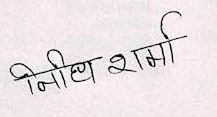 निरीध शर्मा